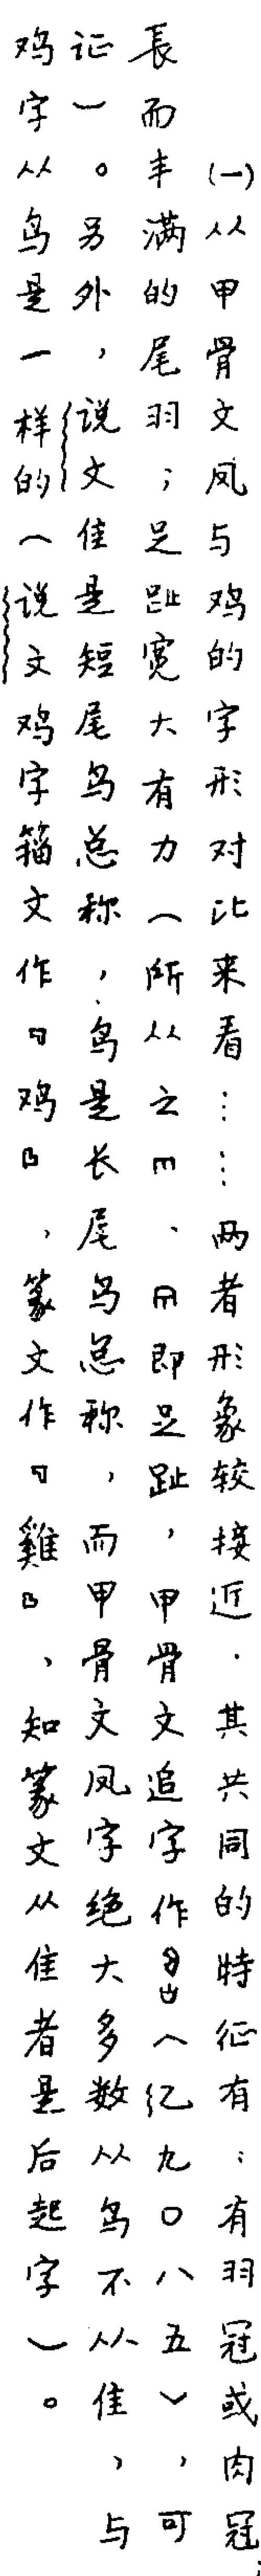 (一)从甲骨文凤与鸡的字形对比来看……两者形象较接近.其共同的特征有:有羽冠或肉冠;
長而丰满的尾羽;足趾宽大有力(所从之、即足趾,甲骨文追字作(亿九〇八五),可
证)。另外,说文隹是短尾鸟总称,鸟是长尾鸟总称,而甲骨文凤字绝大多数从鸟不从隹,与
鸡字从鸟是一样的(说文鸡字籀文作「鸡」,篆文作「雞」,知篆文从隹者是后起字)。